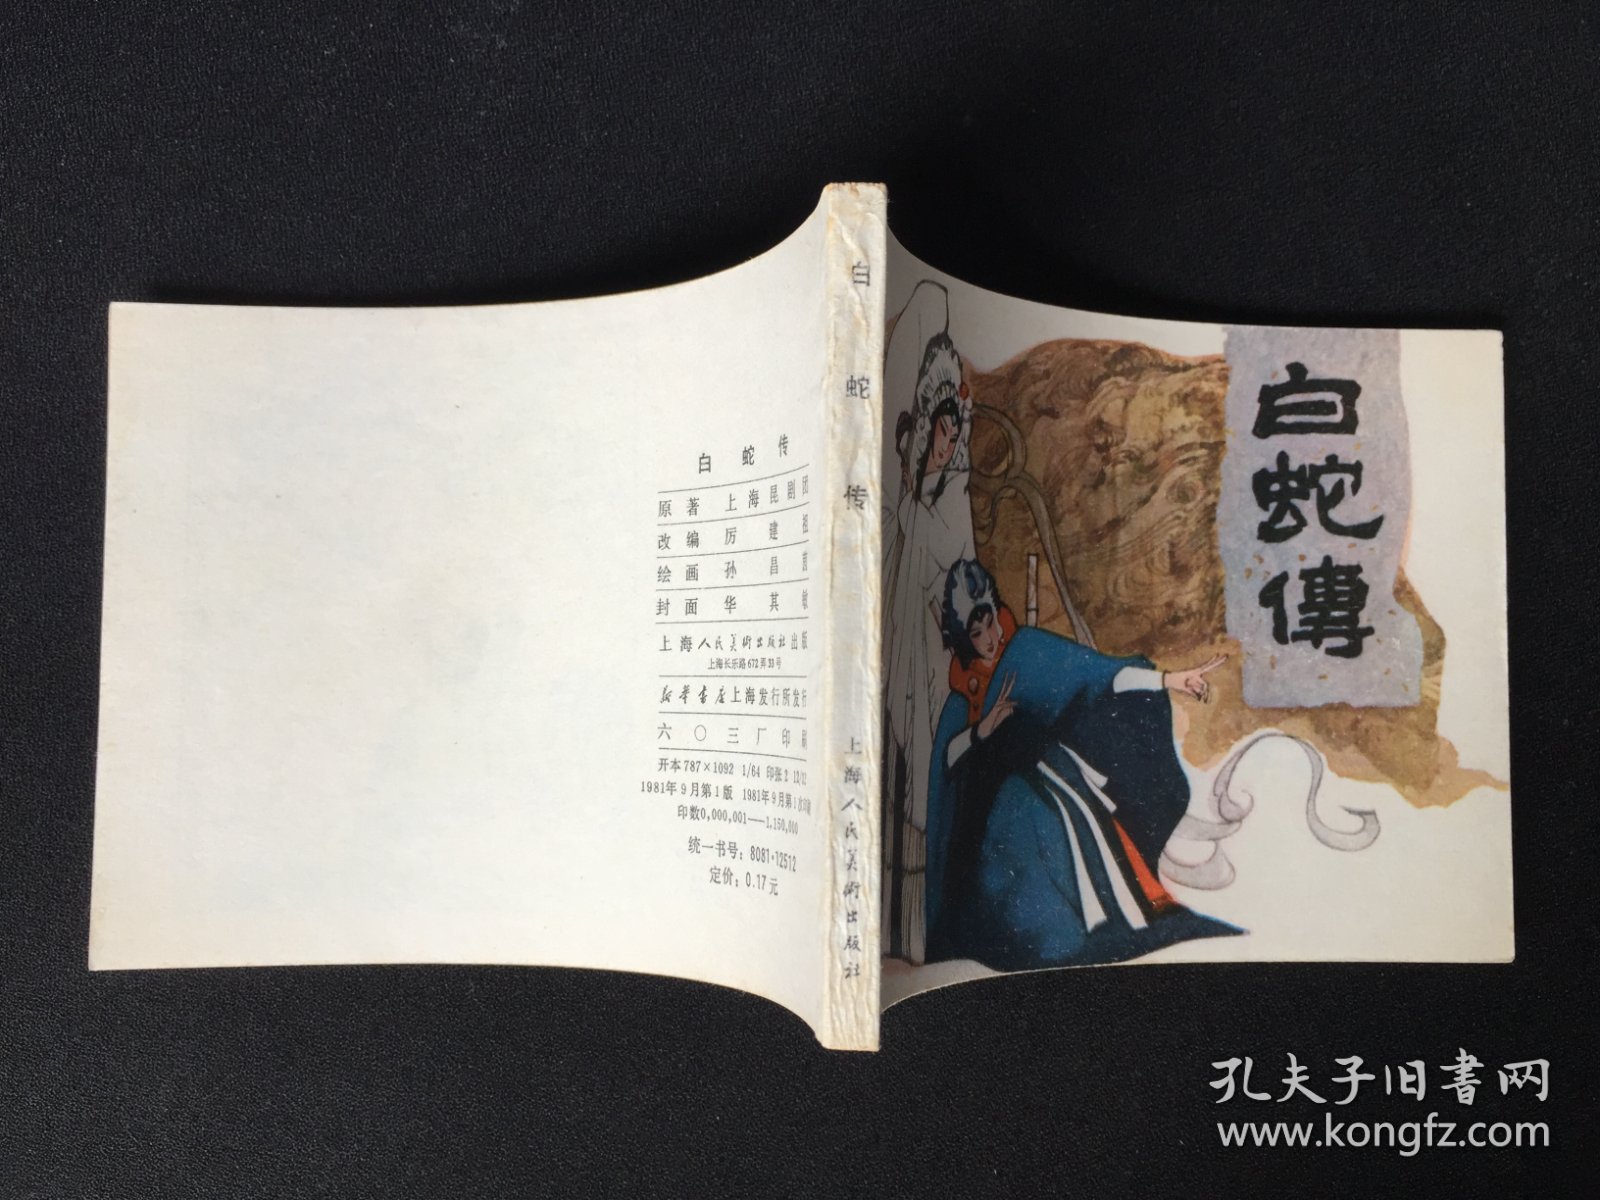 白蛇传
原著 上海昆剧团
改编 厉建祖
绘画 孙昌茵
封面 华其敏
上海人民美術出版社出版
上海长乐路672弄33号
新華書店上海发行所发行
六〇三厂印刷
开本787×1092 1/64 印张2 13/32
1981年9月第1版 1981年9月第1次印刷
印数0,000,001—1,150,000
统一书号：8081·12512
定价：0.17元
白蛇传
上海人民美術出版社
白蛇傳
孔夫子旧書网
www.kongfz.com